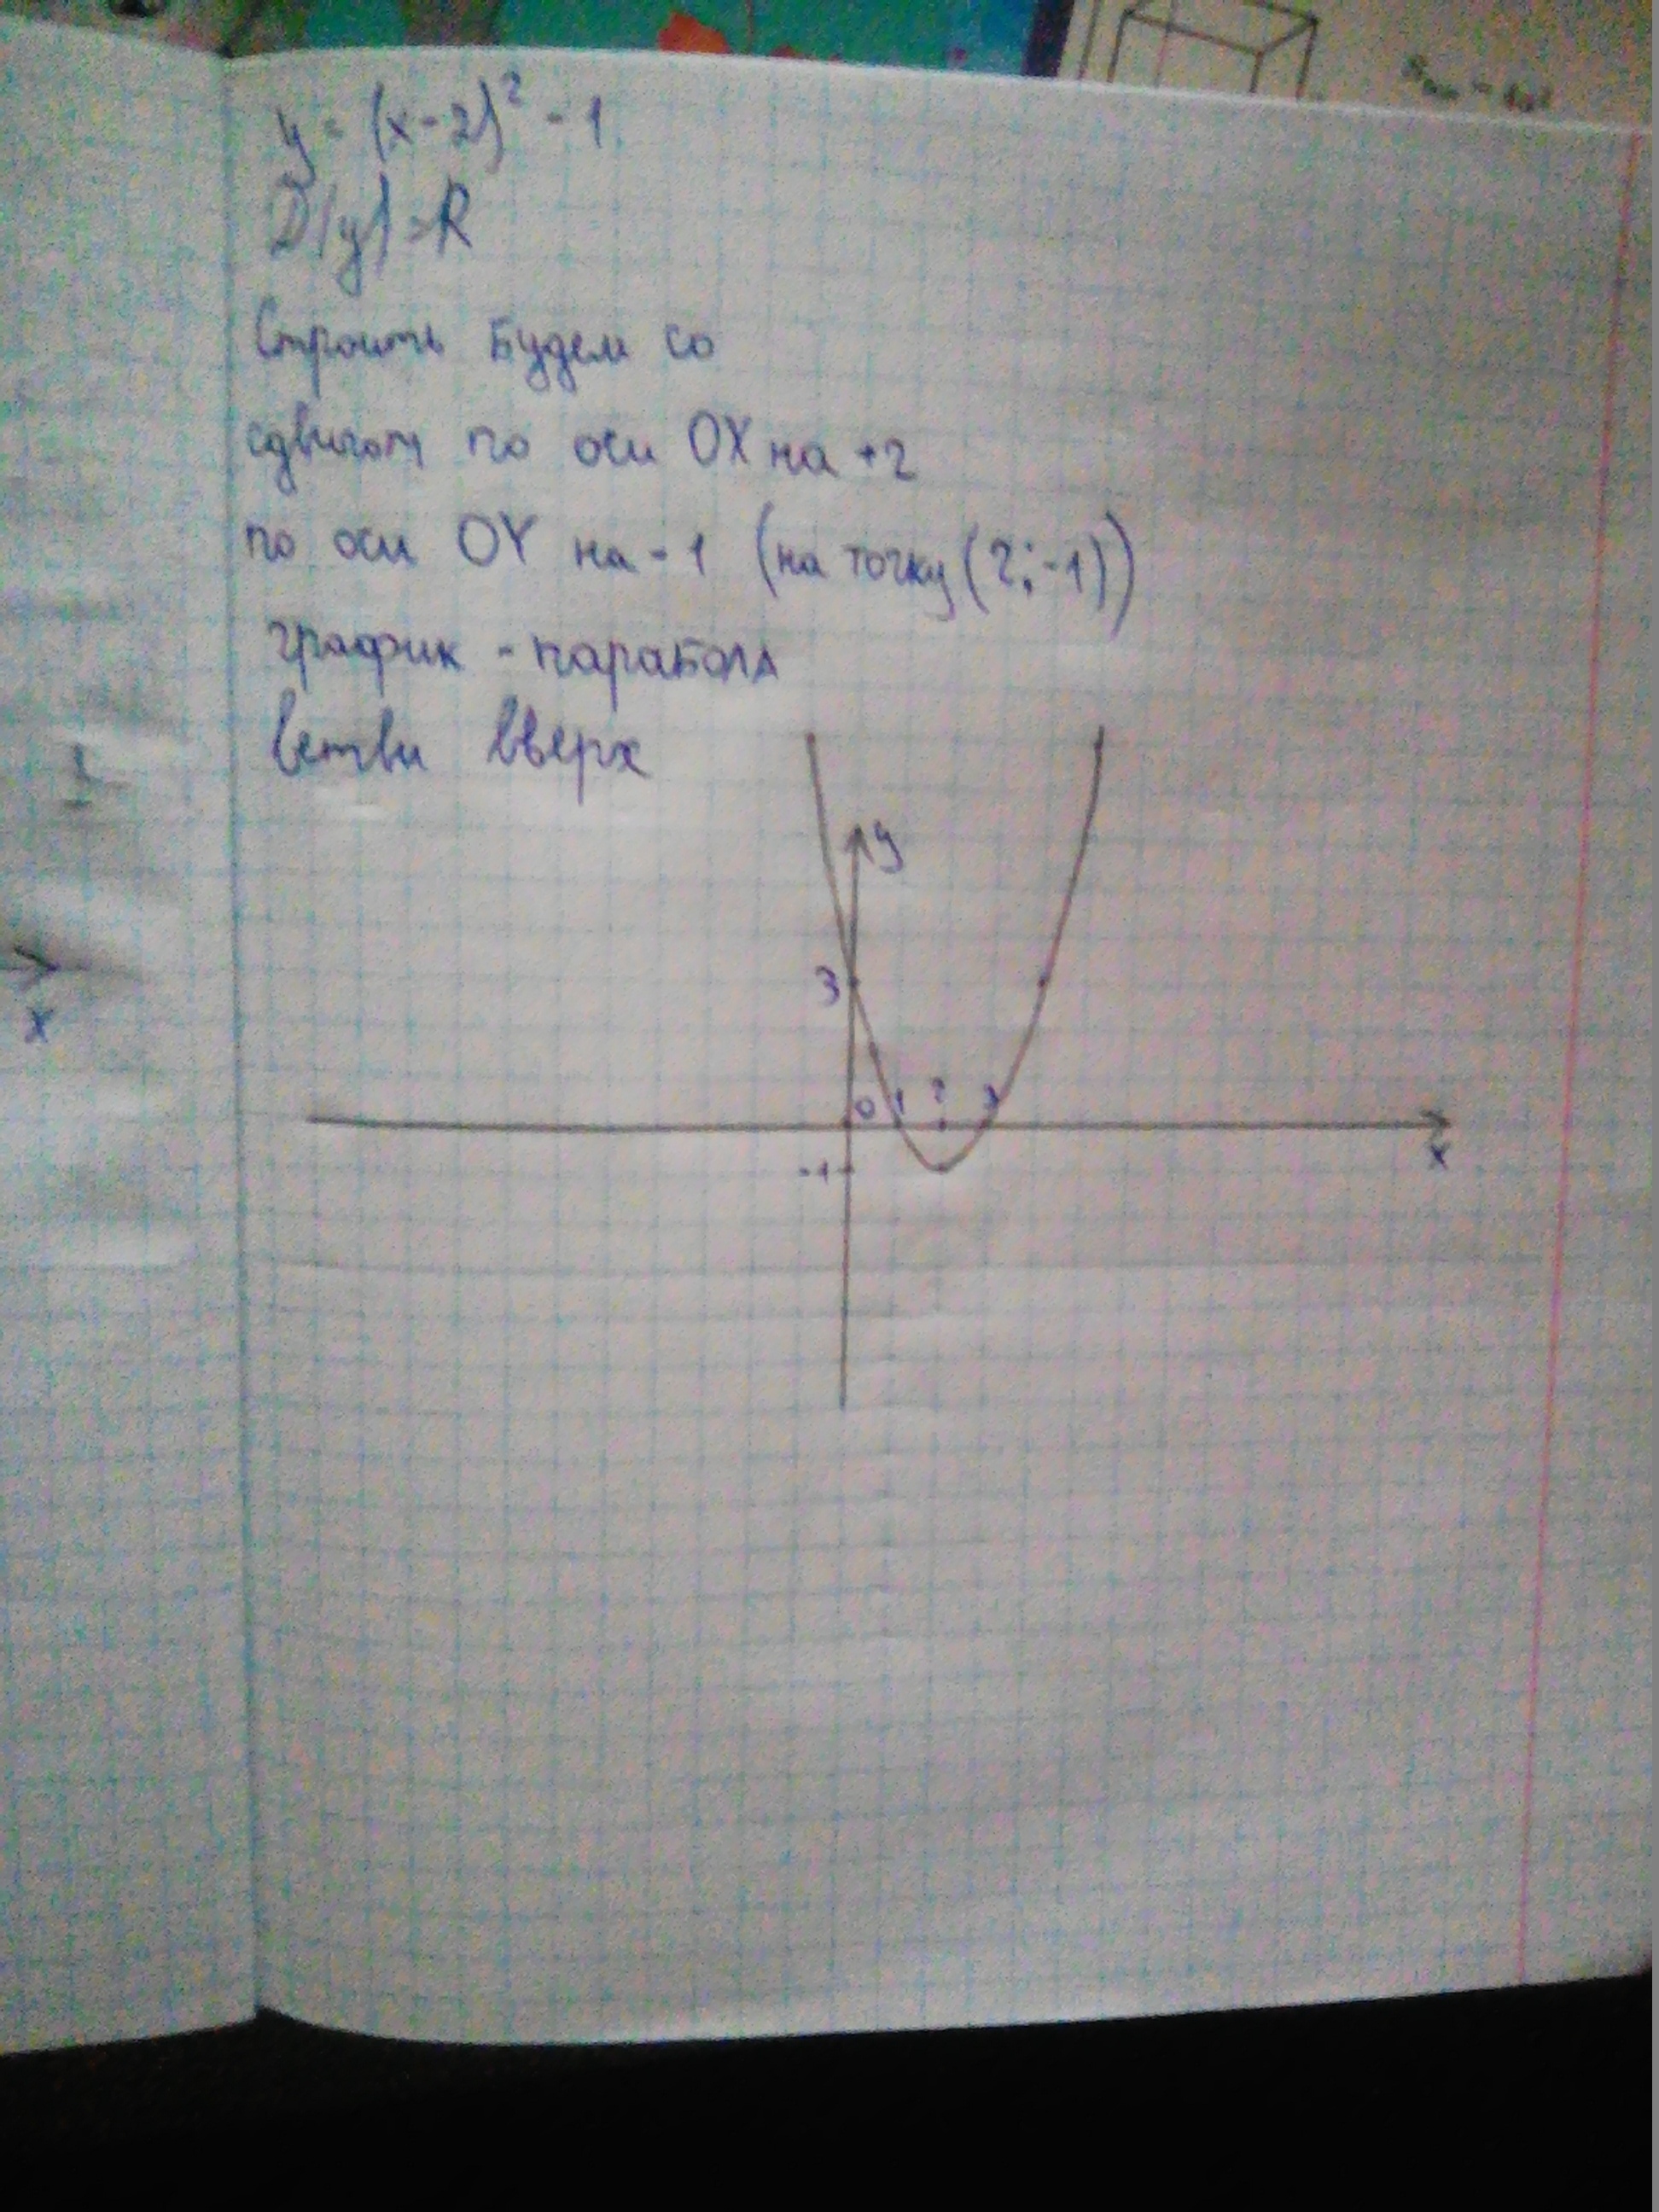 y = (x-2)² - 1
D(y)=R
Строить будем со
сдвигом по оси OX на +2
по оси OY на -1 (на точку (2;-1))
график - парабола
ветви вверх
y
3
0 1 2 3
-1
x
x